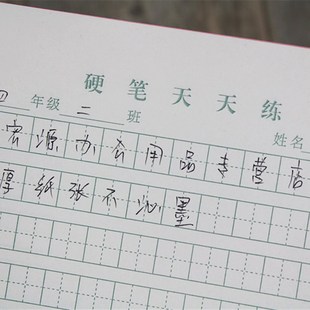 硬笔天天练
四年级二班 姓名
宏源办公用品专营店
厚纸张不沁墨